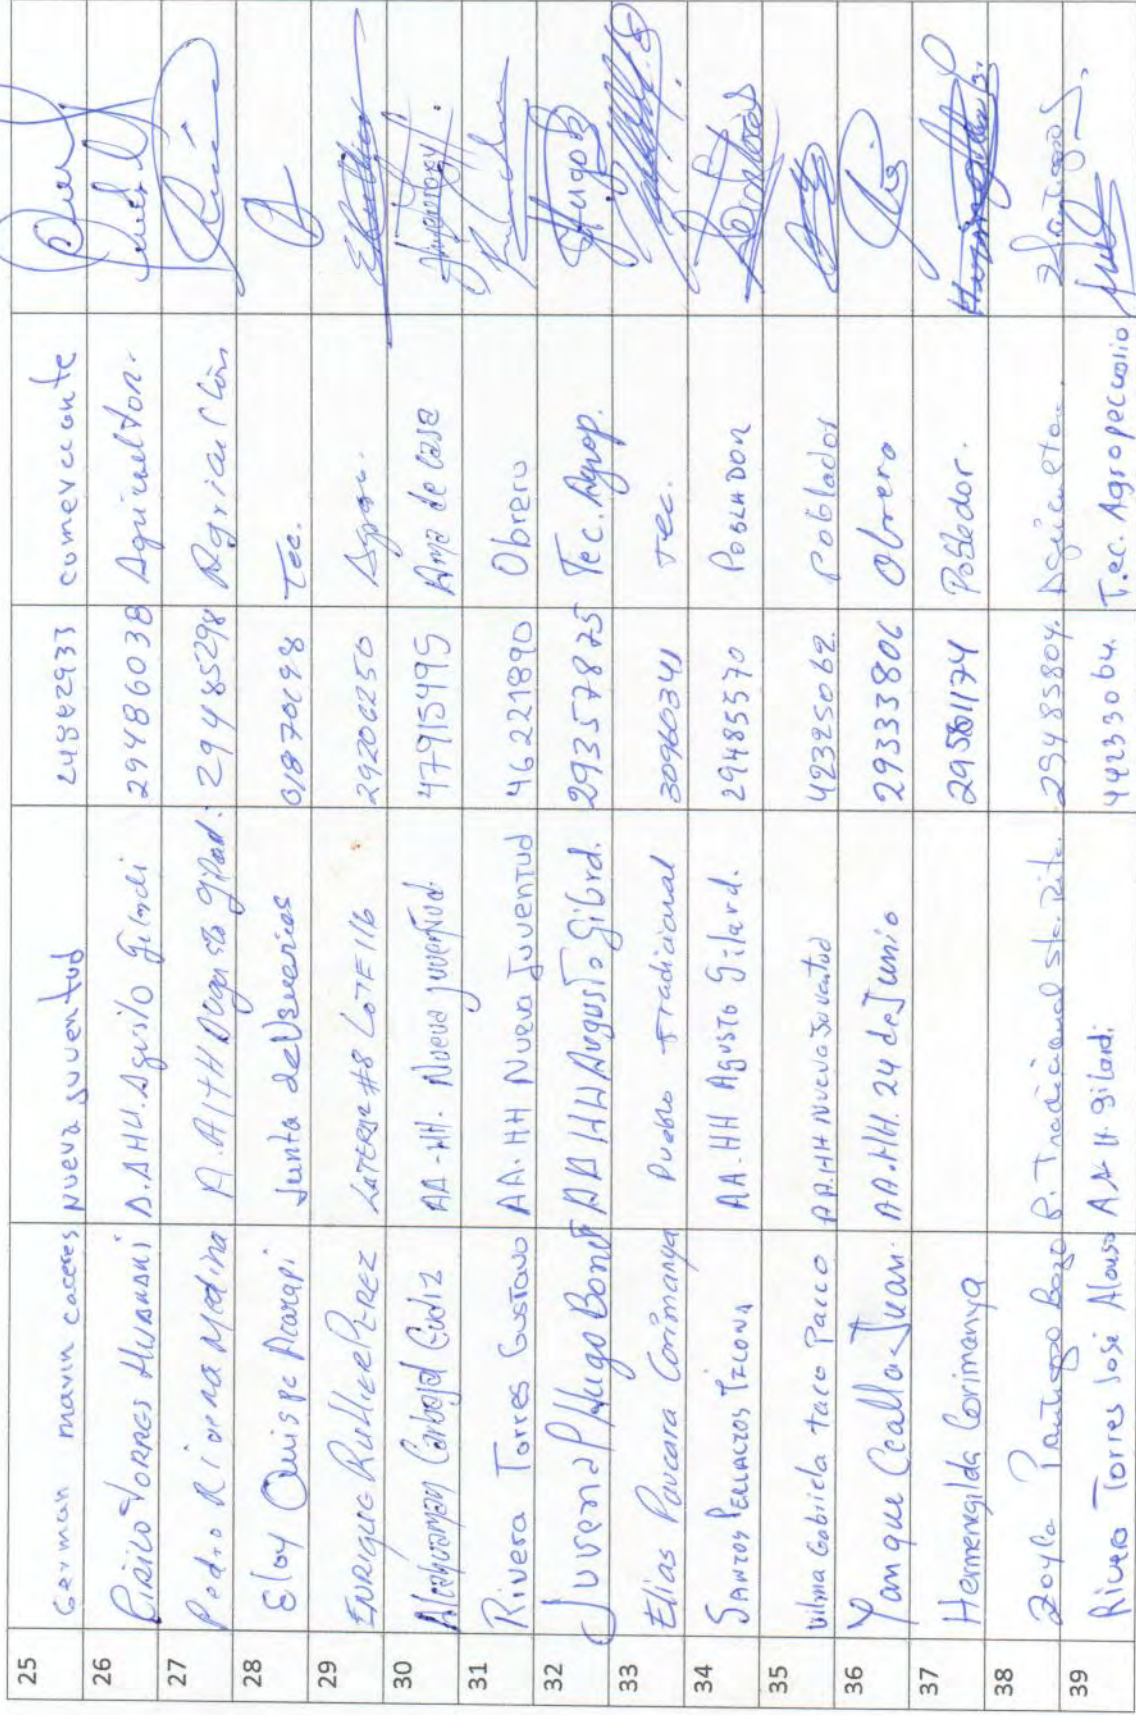 25 German mavin caceres Nueva Juventud 24882933 comerciante
26 Cirilo Torres Huamani A.AHH. Agusto Gilardi 29486038 Agricultor.
27 Pedro Rivera Medina A.AHH Augusto Gilard. 29485298 Agricultor
28 Eloy Quispe Ancarapi Junta de Usuarios 01870698 Tec.
29 Enrique Rullier Perez LATERAL #8 LOTE 116 29200250 Agro.
30 Carbajal AA-HH. Nueva juventud. 47915495 Ama de casa
31 Rivera Torres Gustavo AA.HH Nueva Juventud 46221890 Obrero
32 Juvenal Hugo AA HH Augusto Gilard. 29357875 Tec. Agrop. Hugo B
33 Elias Paucara Corimanya Pueblo Tradicional 30960341 Tec.
34 Santos Tecona AA.HH Agusto Gilard. 29485570 PoblaDor
35 Vilma Gabriela taco Pacco AA.HH Nueva Juventud 42325062. Poblador
36 Yanque Ccalla Juan. AA.HH. 24 de Junio 29333806 Obrero
37 Hermenegilda Corimanya 29561174 Poblador.
38 Zoyla Pantigoso Bozo P. Tradicional sta. Rita. 29485804. Agricultor. Pantigoso
39 Rivera Torres José Alonso AA H. Gilardi 44233064. Tec. Agropecuario